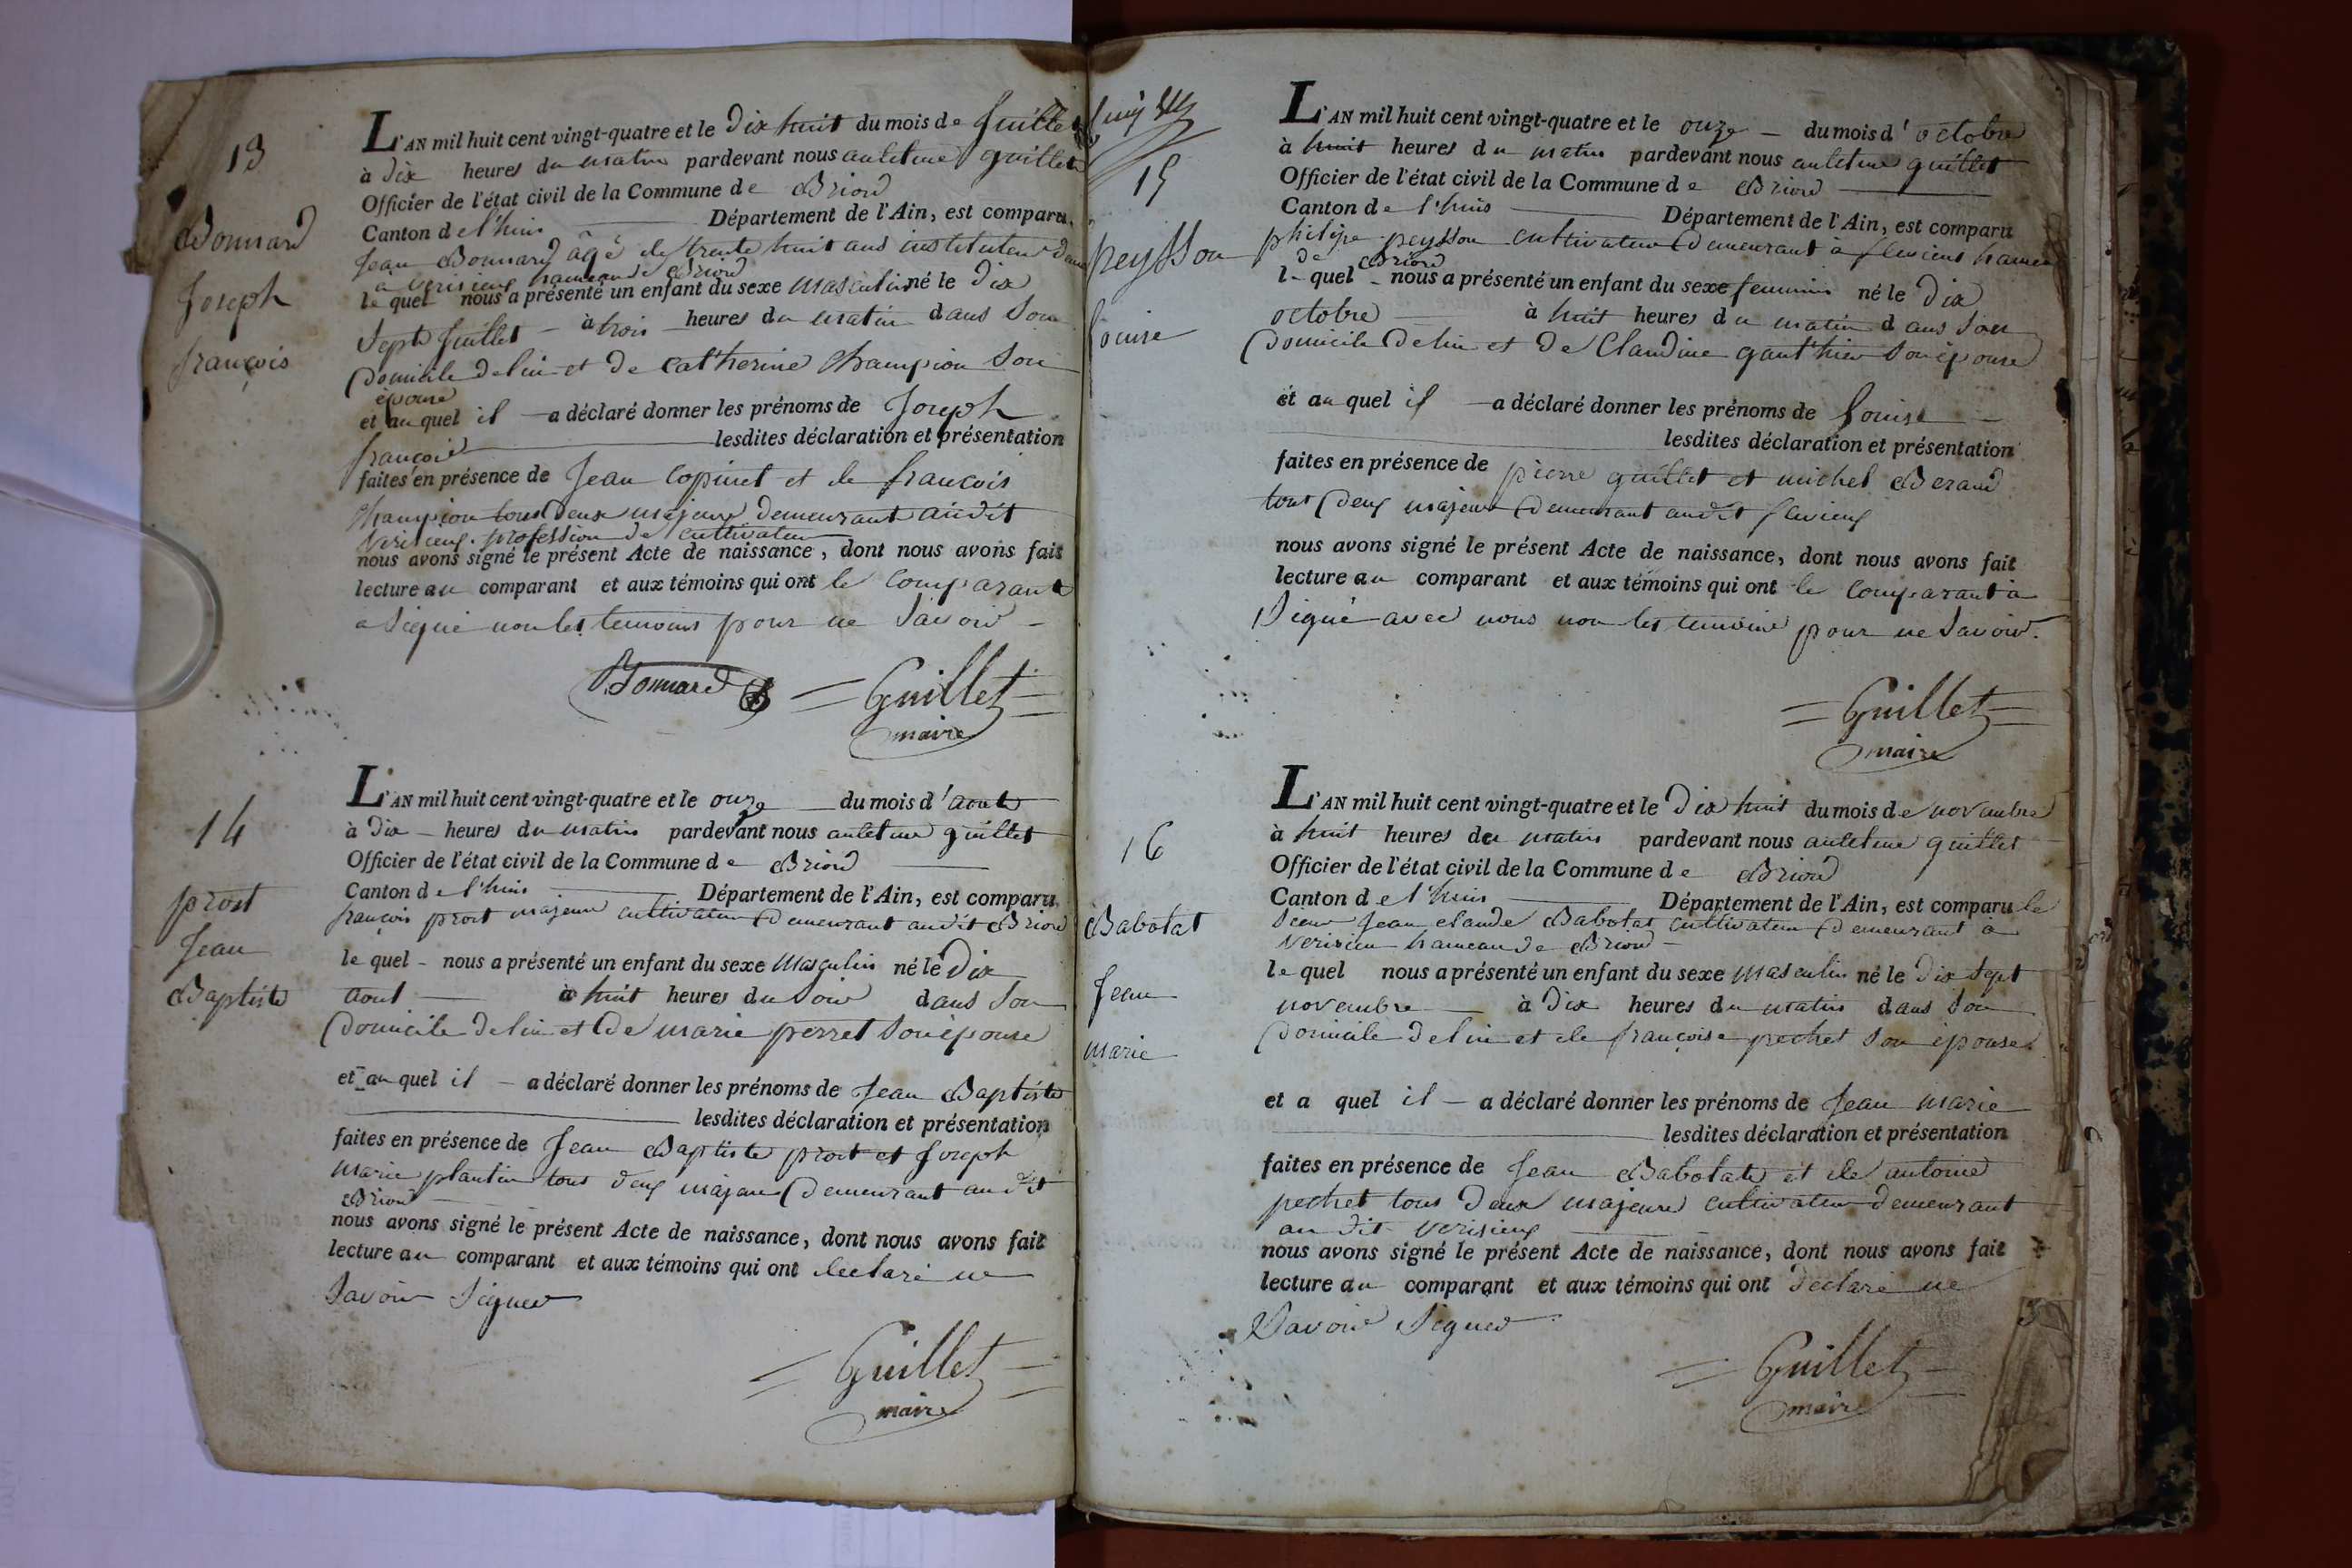 13
Bonnard
Joseph
françois
L'AN mil huit cent vingt-quatre et le Dix huit du mois de Juillet
à Dix heures du matin pardevant nous antelme guillet
Officier de l'état civil de la Commune de Briord
Canton de l'huis Département de l'Ain, est comparu
Jean Bonnard âgé de trente huit ans instituteur
a verisieux hameau de Briord
le quel nous a présenté un enfant du sexe masculin né le Dix
Sept Juillet à trois heures du matin dans Son
Domicile de lui et de Catherine Champion Son
épouse
et au quel il a déclaré donner les prénoms de Joseph
françois lesdites déclaration et présentation
faites en présence de Jean Copinet et de françois
Champion tous Deux majeurs Demeurant audit
verisieux profession de cultivateur
nous avons signé le présent Acte de naissance, dont nous avons fait
lecture au comparant et aux témoins qui ont le Comparant
a Signé non les temoins pour ne Savoir
Bonnard = Guillet =
maire
14
prost
Jean
Baptiste
L'AN mil huit cent vingt-quatre et le onze du mois d'aout
à Dix heures du matin pardevant nous antelme guillet
Officier de l'état civil de la Commune de Briord
Canton de l'huis Département de l'Ain, est comparu
françois prost majeur cultivateur Demeurant audit Briord
le quel nous a présenté un enfant du sexe masculin né le Dix
aout à huit heures du Soir dans Son
Domicile de lui et de marie perret Son épouse
et au quel il a déclaré donner les prénoms de Jean Baptiste
lesdites déclaration et présentation
faites en présence de Jean Baptiste prost et Joseph
marie plantin tous deux majeurs Demeurant au dit
Briord
nous avons signé le présent Acte de naissance, dont nous avons fait
lecture au comparant et aux témoins qui ont declaré ne
Savoir Signer
= Guillet =
maire
15
peysson
Louise
L'AN mil huit cent vingt-quatre et le onze du mois d'octobre
à huit heures du matin pardevant nous antelme guillet
Officier de l'état civil de la Commune de Briord
Canton de l'huis Département de l'Ain, est comparu
philipe peysson cultivateur Demeurant à flevieux hameau
de Briord
le quel nous a présenté un enfant du sexe feminin né le Dix
octobre à huit heures du matin dans Son
Domicile de lui et de Claudine gauthier Son épouse
et au quel il a déclaré donner les prénoms de Louise
lesdites déclaration et présentation
faites en présence de pierre guillet et michel Beraud
tout Deux majeur Demeurant audit flevieux
nous avons signé le présent Acte de naissance, dont nous avons fait
lecture au comparant et aux témoins qui ont le Comparant a
Signé avec nous non les temoins pour ne Savoir.
= Guillet =
maire
16
Babolat
Jean
marie
L'AN mil huit cent vingt-quatre et le Dix huit du mois de novembre
à huit heures du matin pardevant nous antelme guillet
Officier de l'état civil de la Commune de Briord
Canton de l'huis Département de l'Ain, est comparu le
Sieur Jean claude Babolat cultivateur Demeurant a
verisieu hameau de Briord
le quel nous a présenté un enfant du sexe masculin né le Dix Sept
novembre à Dix heures du matin dans Son
Domicile de lui et de françoise pechet Son épouse
et a quel il a déclaré donner les prénoms de Jean marie
lesdites déclaration et présentation
faites en présence de Jean Babolat et de antoine
pechet tous Deux majeurs cultivateur demeurant
au dit verisieux
nous avons signé le présent Acte de naissance, dont nous avons fait
lecture au comparant et aux témoins qui ont declaré ne
Savoir Signer
= Guillet =
maire